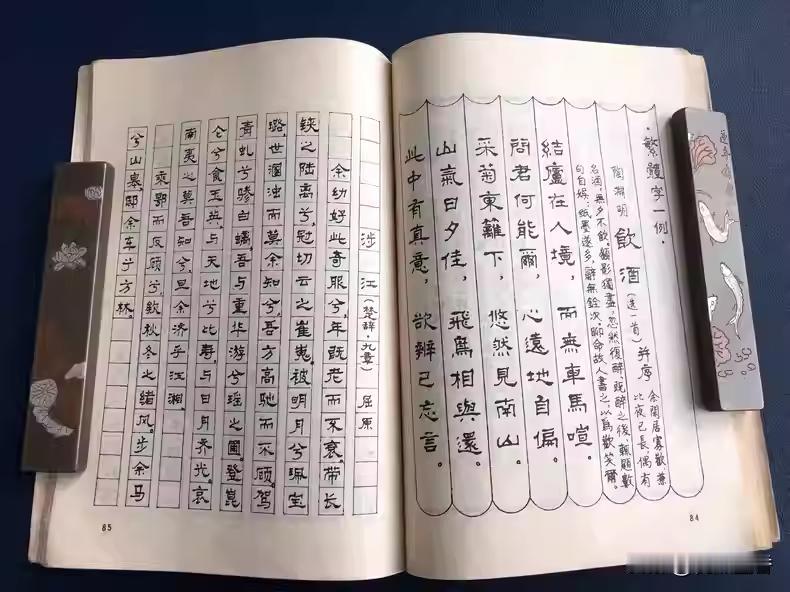 ·繁體字一例·
陶淵明 飲酒(选一首)并序 余閑居寡歡,兼
比夜已長,偶有
名酒,無夕不飲。顧影獨盡,忽然復醉。既醉之後,輒題數
句自娱;紙墨遂多,辭無銓次。聊命故人書之,以爲歡笑爾。
結廬在人境,而無車馬喧。
問君何能爾,心遠地自偏。
采菊東籬下,悠然見南山。
山氣日夕佳,飛鳥相與還。
此中有真意,欲辨已忘言。
84
涉江(楚辞·九章)屈原
余幼好此奇服兮,年既老而不衰。带长
铗之陆离兮,冠切云之崔嵬。被明月兮珮宝
璐。世溷浊而莫余知兮,吾方高驰而不顾。驾
青虬兮骖白螭,吾与重华游兮瑶之圃。登崑
仑兮食玉英,与天地兮比寿,与日月齐光。哀
南夷之莫吾知兮,旦余济乎江湘。
乘鄂而反顾兮,欸秋冬之绪风。步余马
兮山皋,邸余车兮方林。
85